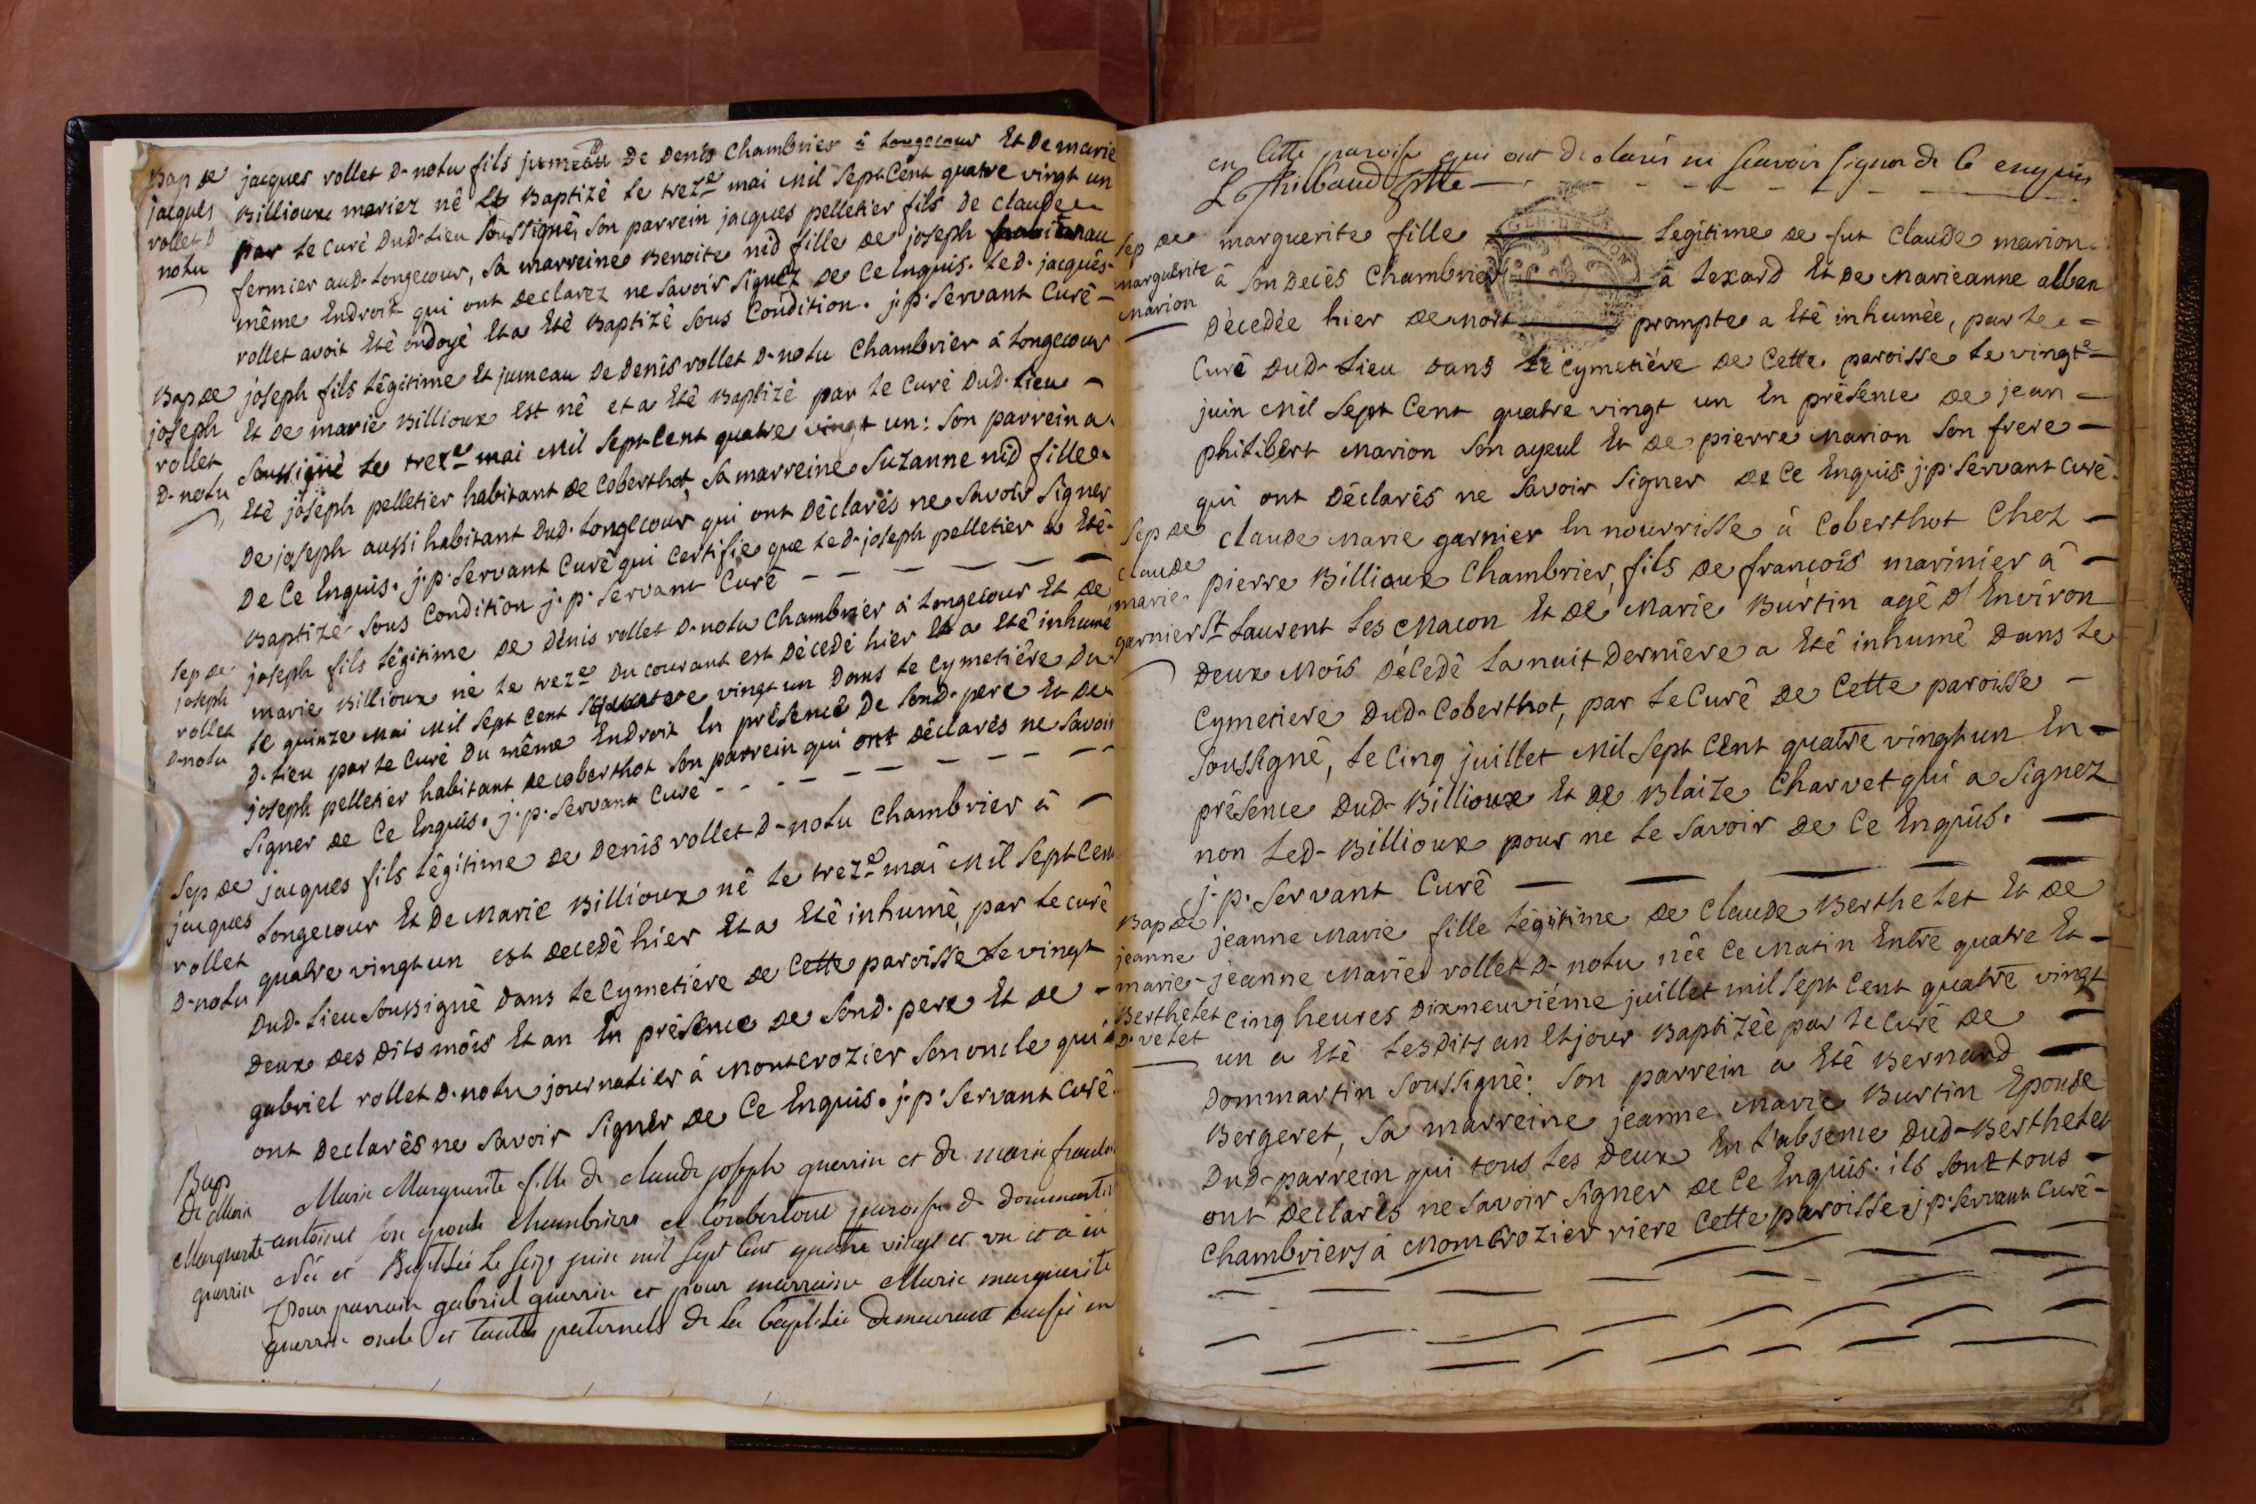 Bap de
jacques
rollet D
notu
jacques rollet D-notu fils jumeau De Denis Chambrier à Longecour Et De marie
Billioux mariez né Et Baptizé le treze mai Mil Sept Cent quatre vingt un
par le Curé Dud. Lieu Soussigné, Son parrein jacques pelletier fils de claude
fermier aud. Longecour, Sa marreine Benoite nid fille de joseph au
même Endroit qui ont declarez ne Savoir Signez De Ce Enquis. Led. jacques
rollet avoit Eté ondoyé Et a Eté Baptizé Sous Condition. j. p. Servant Curé
Bap de
joseph
rollet
D-notu
joseph fils légitime Et jumeau De Denis rollet D-notu Chambrier à Longecour
Et De marie Billioux Est né et a Eté Baptizé par le Curé Dud. Lieu
Soussigné le treze mai Mil Sept Cent quatre vingt un: Son parrein a
Eté joseph pelletier habitant de Coberthot, Sa marreine Suzanne nid fille
De joseph aussi habitant Dud. Longecour qui ont Déclarés ne Savoir Signer
De Ce Enquis. j. p. Servant Curé qui Certifie que Led. joseph pelletier a Eté
Baptizé Sous Condition j. p. Servant Curé
Sep de
joseph
rollet
D-notu
joseph fils légitime De Denis rollet D-notu Chambrier à Longecour Et De
marie Billioux né le treze Du courant est Décedé hier Et a Eté inhumé
le quinze Mai Mil Sept Cent quatre vingt un Dans le Cymetiére Du
D. Lieu par le Curé Du même Endroit En présence De Sond. pere Et De
joseph pelletier habitant de coberthot Son parrein qui ont Déclarés ne Savoir
Signer De Ce Enquis. j. p. Servant Curé
Sep de
jacques
rollet
D-notu
jacques fils légitime De Denis rollet D-notu Chambrier à
Longecour Et De Marie Billioux né le treze mai Mil Sept Cent
quatre vingt un est Decedé hier Et a Eté inhumé, par le curé
Dud. Lieu Soussigné Dans le Cymetiére De Cette paroisse le vingt
Deux Des Dits mois Et an En présence De Sond. pere Et De
gabriel rollet D-notu journalier à Montcrozier Son oncle qui
ont Declarés ne Savoir Signer De Ce Enquis. j. p. Servant Curé.
Bap
De Marie
Marguerite
guerrin
Marie Marguerite fille de claude joseph guerrin et de marie
antoinet Son epouse chambriere a Coubertout paroisse de dommartin
née et Baptisée le Seize juin mil Sept Cent quatre vingt et un et a eu
Pour parrain gabriel guerrin et pour marraine Marie marguerite
guerrin oncle et tante paternels de la baptisée demeurant aussi en
en Cette paroisse qui ont declarés ne Scavoir Signer de Ce enquis
L. Thiebaud
Sep de
marguerite
Marion
marguerite fille légitime de fut Claude marion
à Son Decès Chambrier à Lexard Et De Marieanne alban
Décedée hier De Mort prompte a Eté inhumée, par le
Curé Dud. Lieu Dans le Cymetiére De Cette paroisse le vingt
juin Mil Sept Cent quatre vingt un En présence De jean
philibert Marion Son ayeul Et De pierre Marion Son frere
qui ont Déclarés ne Savoir Signer De Ce Enquis j. p. Servant Curé.
Sep de
claude
marie
garnier
claude Marie garnier En nourrisse à Coberthot Chez
pierre Billioux Chambrier, fils De françois marinier à
St Laurent Les Macon Et De Marie Burtin agé D'Environ
Deux Mois Décedé la nuit Derniere a Eté inhumé Dans le
Cymetiere Dud. Coberthot, par le Curé De Cette paroisse
Soussigné, le Cinq juillet Mil Sept Cent quatre vingt un En
présence Dud. Billioux Et De Blaize Charvet qui a Signez
non Led. Billioux pour ne le Savoir De Ce Enquis.
j. p. Servant Curé
Bap de
jeanne
marie
Berthelet
D-velet
jeanne Marie fille légitime De Claude Berthelet Et De
jeanne Marie rollet D-notu née Ce Matin Entre quatre Et
Cinq heures Dixneuviéme juillet mil Sept Cent quatre vingt
un a Eté Lesdits an Et jour Baptizée par le Curé De
Dommartin Soussigné. Son parrein a Eté Bernard
Bergeret, Sa marreine jeanne Marie Burtin Epouse
Dud. parrein qui tous les Deux En l'absence Dud. Berthelet
ont Declarés ne Savoir Signer De Ce Enquis. ils Sont tous
Chambriers à Moncrozier riere Cette paroisse. j. p. Servant Curé